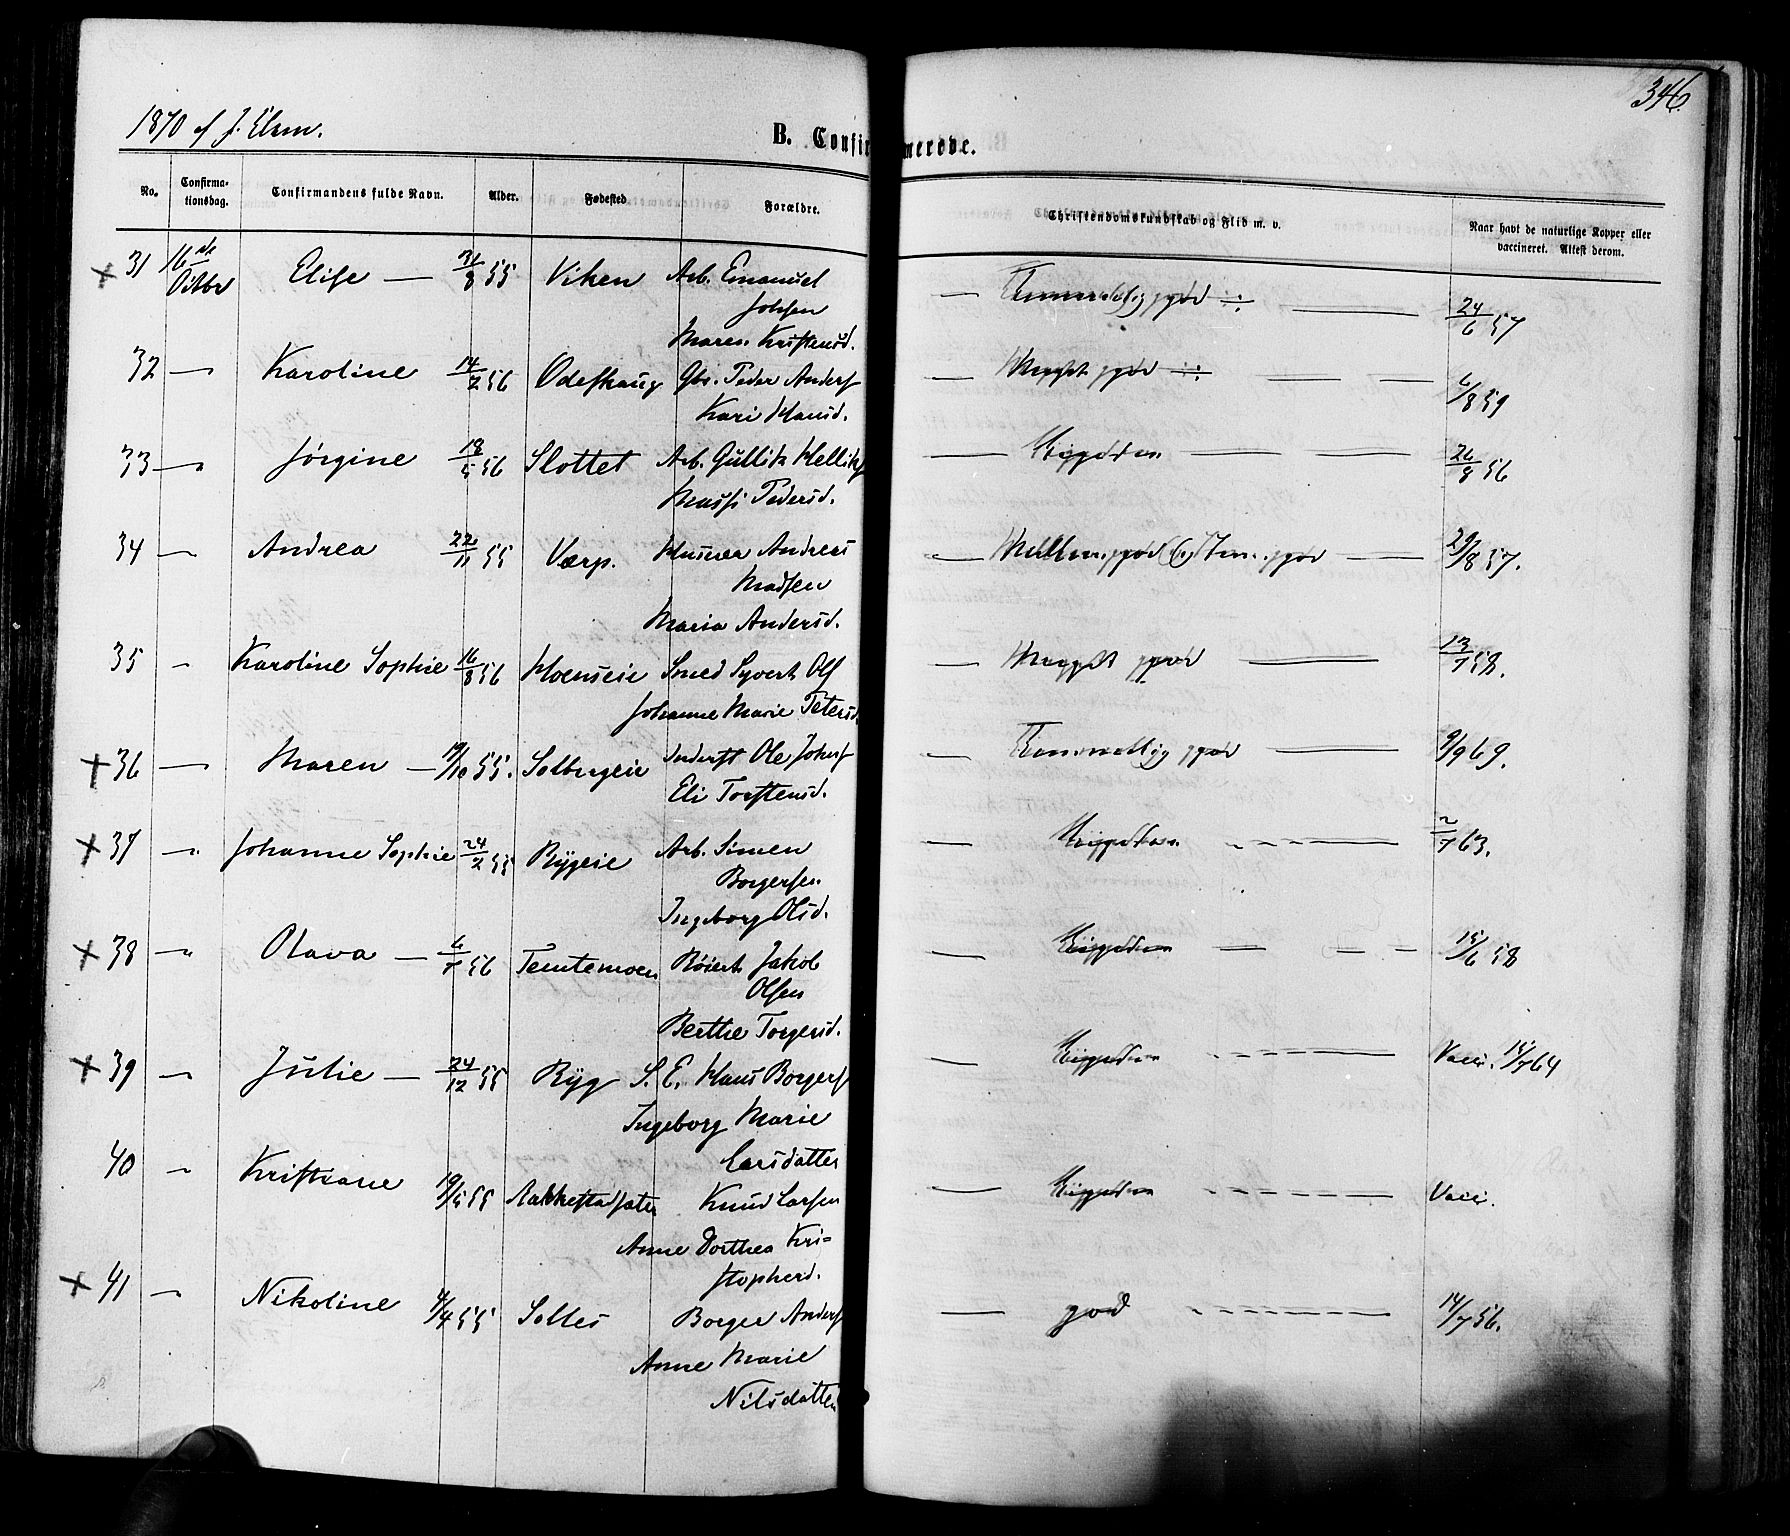 346.
1870 J. Elsm.
B. Confir merede.
No. Confirma-tionsdag. Confirmandens fulde Navn. Alder. Fødested Forældre. Christendomskundskab og Flid m. v. Naar havt de naturlige Kopper eller vaccineret. Attest derom.
31 16de Octbr Elise — 31/8 55 Viken Arb. Emanuel — ÷ — 24/6 57
Johsen
Maren Kristensd.
32 — Karoline 14/2 56 Odeskaug Gbr. Peder Anders — Meget god ÷ — — 6/8 59
Kari Hansd.
33 — Jørgine 18/5 56 Slottet Arb. Gullik Helliks — — — 26/8 56
Massi Pedersd.
34 — Andrea 22/11 55 Værp. Husm Andreas — god — 29/8 57.
Madsen
Maria Andersd.
35 — Karoline Sophie 16/8 56 Hoenseie Smed Syvert Ols — Meget god — 13/7 58.
Johanne Marie Petersd.
+ 36 — Maren — 19/10 55. Solbergeie Inderst Ole Johs — Temmelig god — 9/9 69.
Eli Torstensd.
+ 37 — Johanne Sophie 24/2 55 Rygeie Arb. Simen — — 2/7 63.
Borgersen
Ingeborg Olsd.
+ 38 — Olava — 6/7 56 Temtemoen Røiert Jakob — — — — 15/6 58
Olsen
Berthe Torgersd.
+ 39 — Julie — 24/12 55 Ryg S. E. Hans Borgers — — Vacc. 15/7 64
Ingeborg Marie
Larsdatter
40 — Kristiane 19/5 55 Knud Larsen — — Vacc.
Anne Dorthea Kri-
stophersd.
+ 41 — Nikoline 4/4 55 Solles Borger Anders — god — 14/7 56.
Anne Marie
Nilsdatter